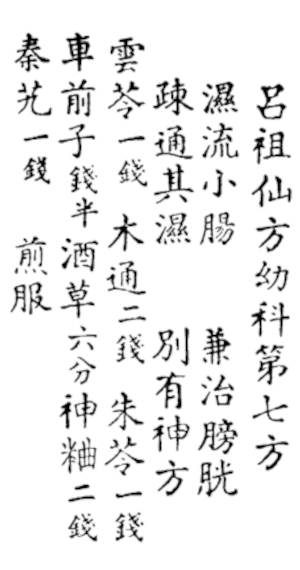 呂祖仙方幼科第七方
濕流小腸 兼治膀胱
疎通其濕 別有神方
雲苓一錢 木通二錢 朱苓一錢
車前子錢半 酒草六分 神粬二錢
秦艽一錢 煎服